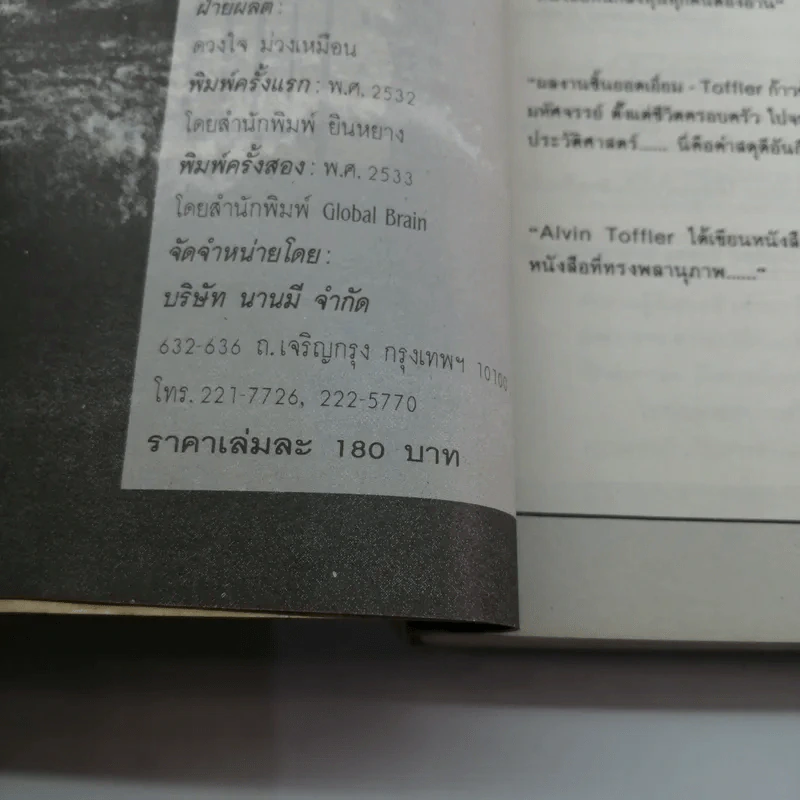 ฝ่ายผลิต :
ดวงใจ ม่วงเหมือน
พิมพ์ครั้งแรก : พ.ศ. 2532
โดยสำนักพิมพ์ ยินหยาง
พิมพ์ครั้งสอง : พ.ศ. 2533
โดยสำนักพิมพ์ Global Brain
จัดจำหน่ายโดย :
บริษัท นานมี จำกัด
632-636 ถ.เจริญกรุง กรุงเทพฯ 10100
โทร. 221-7726, 222-5770
ราคาเล่มละ 180 บาท
"ผลงานชิ้นยอดเยี่ยม - Toffler ก้าว
มหัศจรรย์ ตั้งแต่ชีวิตครอบครัว ไป
ประวัติศาสตร์...... นี่คือคำสดุดีอัน
"Alvin Toffler ได้เขียนหนังสือ
หนังสือที่ทรงพลานุภาพ......"